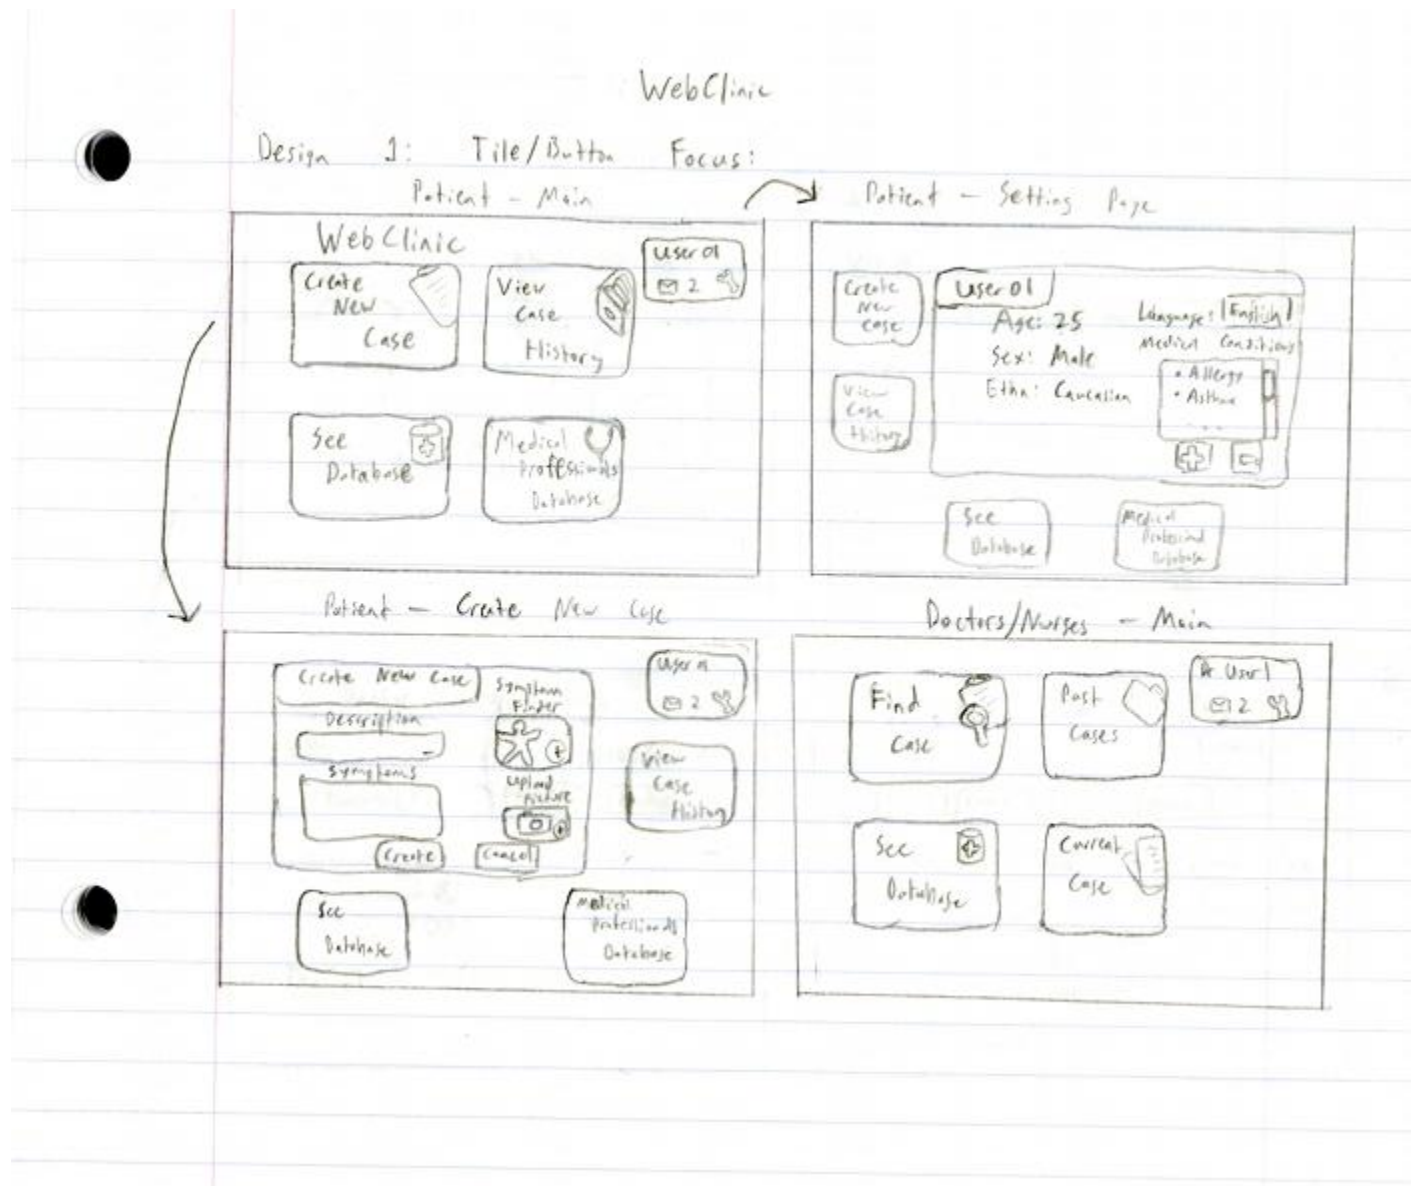 WebClinic
Design 1: Tile/Button Focus:
Patient - Main
WebClinic
Create
New
Case
View
Case
History
User 01
2
See
Database
Medical
Professionals
Database
Patient - Setting Page
Create
New
Case
View
Case
History
User 01
Age: 25
Sex: Male
Ethn: Caucasian
Language: English
Medical Conditions
• Allergy
• Asthma
...
See
Database
Medical
Professional
Database
Patient - Create New Case
Create New Case
Description
Symptoms
Symptom
Finder
Upload
Picture
Create
Cancel
User 01
2
View
Case
History
See
Database
Medical
Professionals
Database
Doctors/Nurses - Main
Find
Case
Past
Cases
Dr User 1
2
See
Database
Current
Case